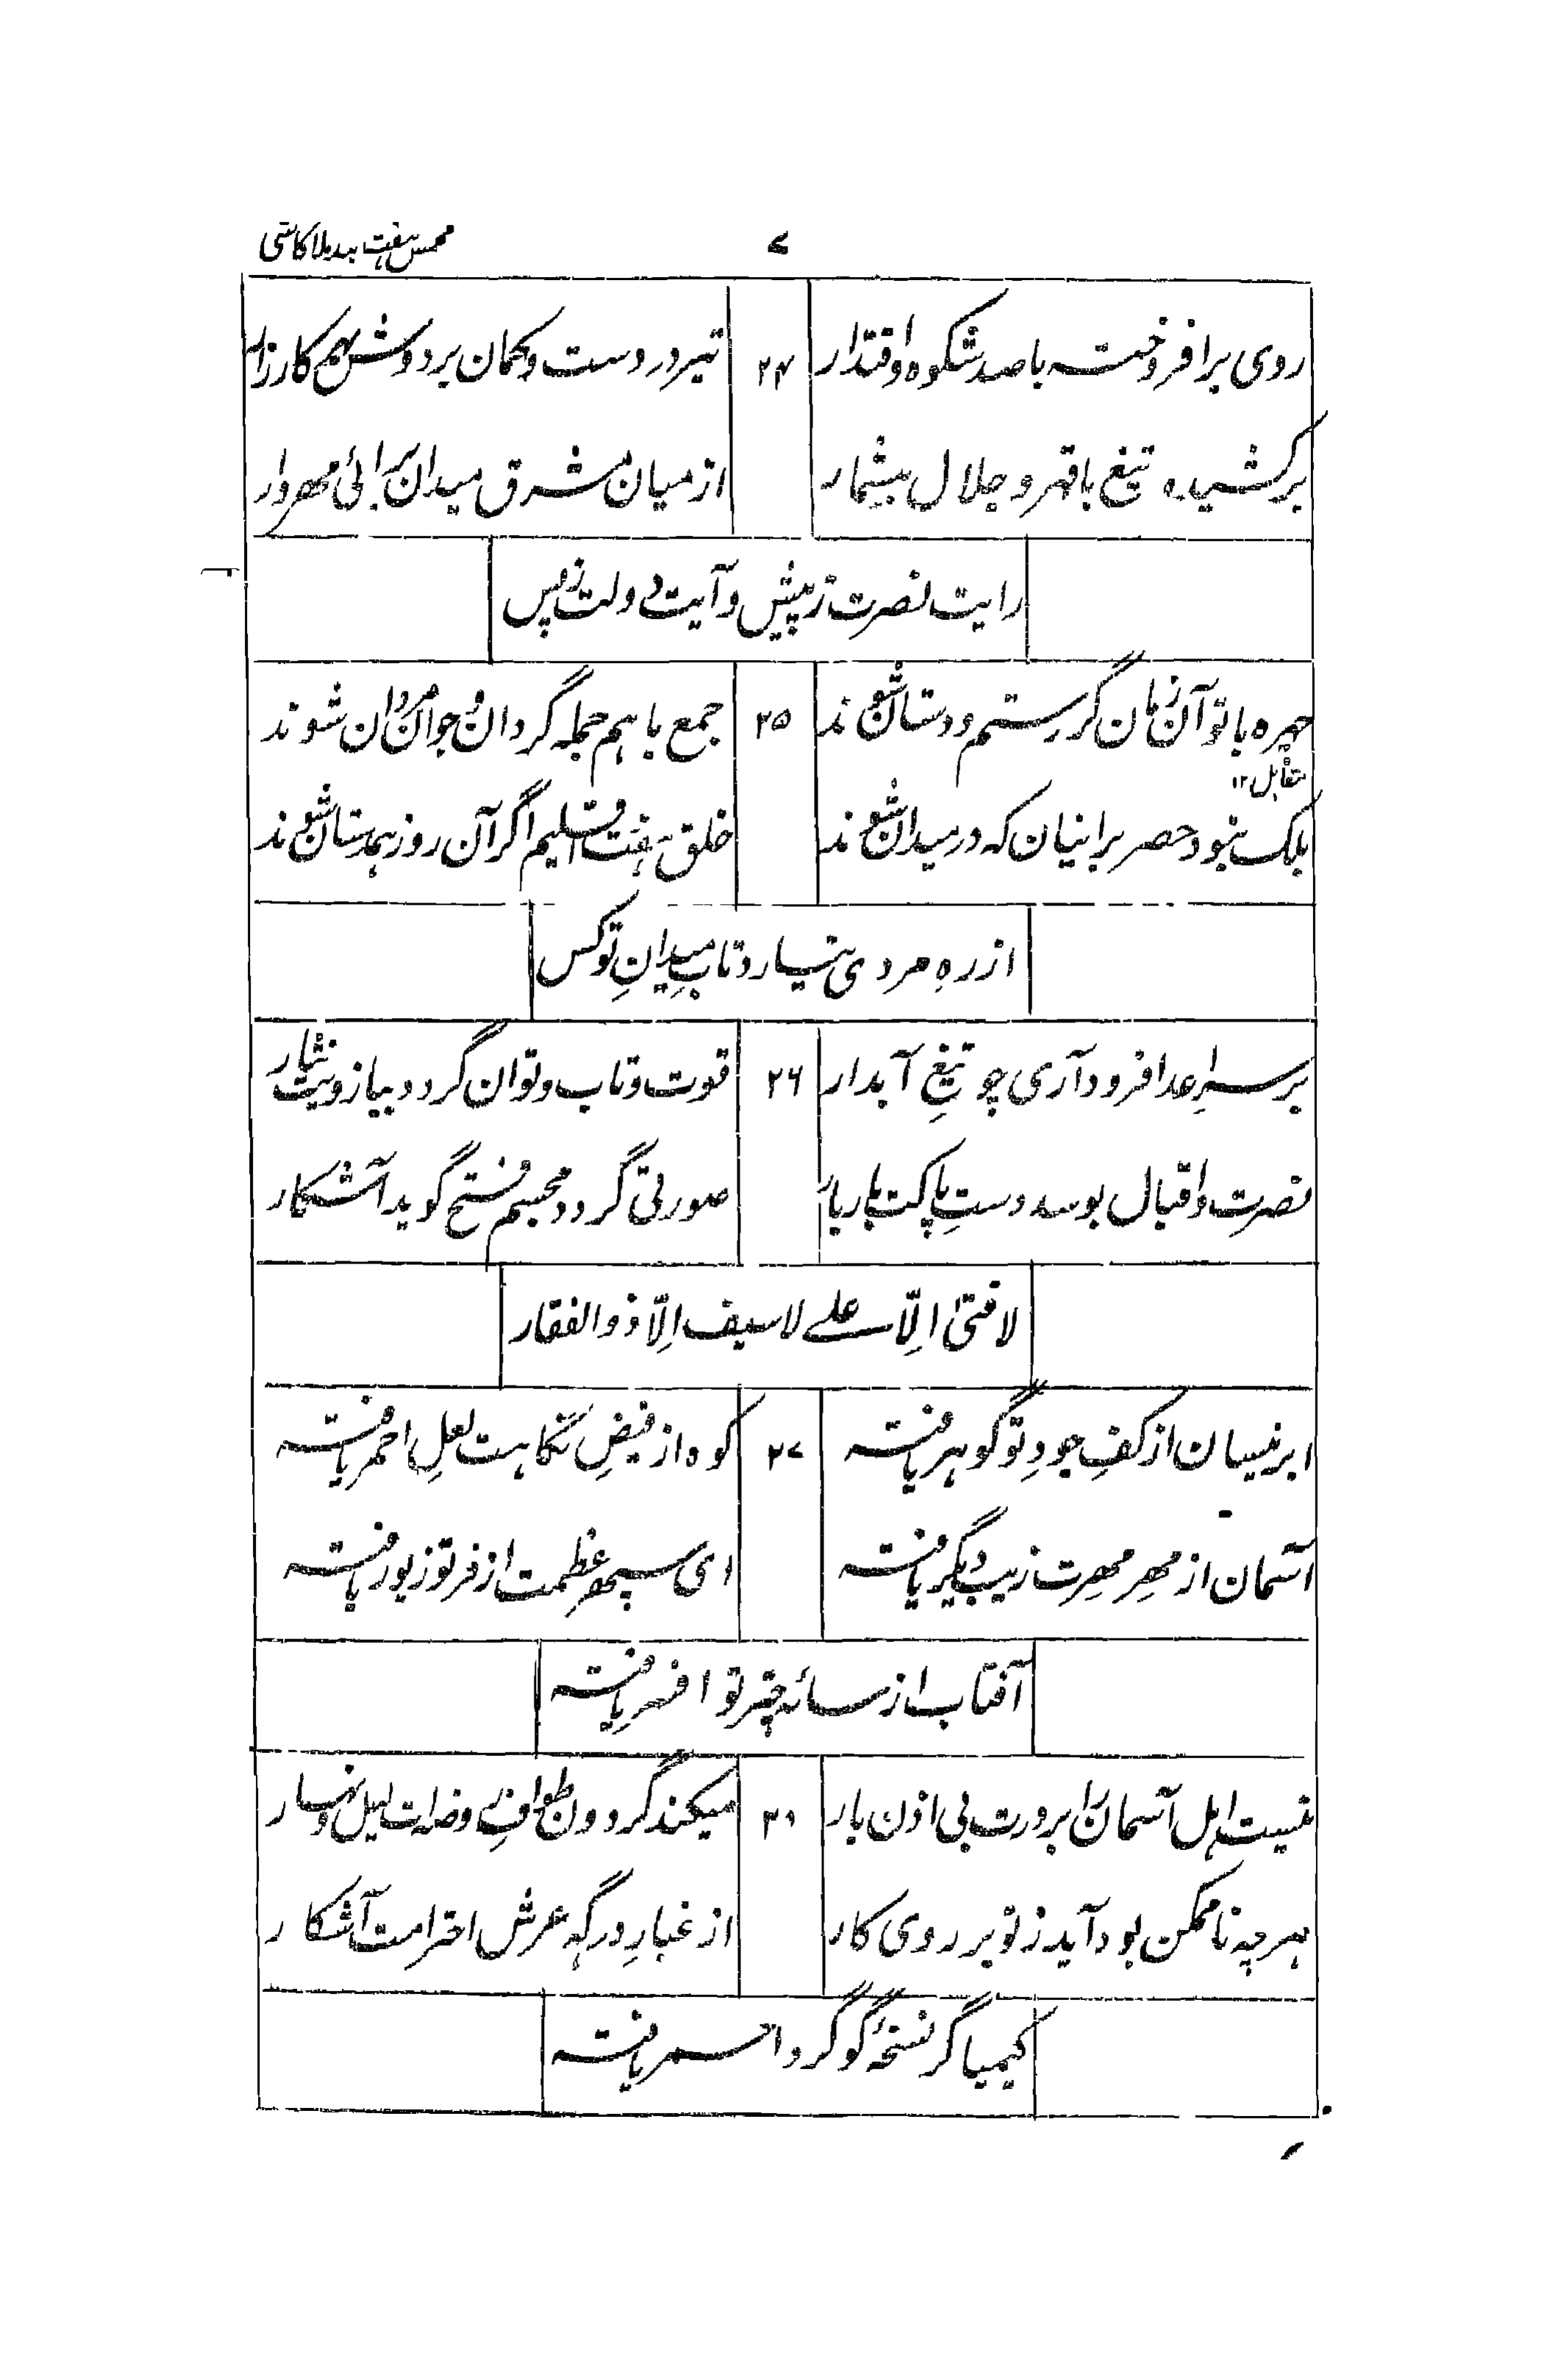 ۷ مخمس ہفت بند ملا کاشی
روی برافروخته با صد شکوه و اقتدار ۲۴ تیر در دست و کمان بر دوش بهر کارزار
برکشیده تیغ با قهر و جلال بیشمار از میان مشرق میدان برائی مهروار
رایت نصرت ز پیش و آیت دولت ز پس
چهره با تو آن زمان گر رستم و دستان شوند ۲۵ جمع با هم جمله گردان و جوانمردان شوند
مقابل ۱۲
بلکه نبود حصر بر اینان که در میدان شوند خلق هفت اقلیم اگر آن روز همدستان شوند
از رهِ مردی نیارد تابِ میدانِ تو کس
بر سرِ اعدا فرود آری چو تیغِ آبدار ۲۶ قوت و تاب و توان گردد ببازویت نثار
نصرت و اقبال بوسد دستِ پاکت بار بار صورتی گردد مجسم فتح گوید آشکار
لا فتیٰ اِلّا علے لا سیف اِلّا ذوالفقار
ابر نیسان از کفِ جودِ تو گوهر یافته ۲۷ کوه از فیضِ نگاهت لعلِ احمر یافته
آسمان از مهرِ مهرت زیب دیگر یافته ای سپهرِ عظمت از فر تو زیور یافته
آفتاب از سائهٔ چتر تو افسر یافته
نیست اهل آسمان را بر درت بی اذن بار ۳۰ میکند گردون طوافِ روضه ات لیل و نهار
هرچه ناممکن بود آید ز تو بر روی کار از غبارِ درگهِ عرش احترامت آشکار
کیمیاگر نسخهٔ گوگرد احمر یافته